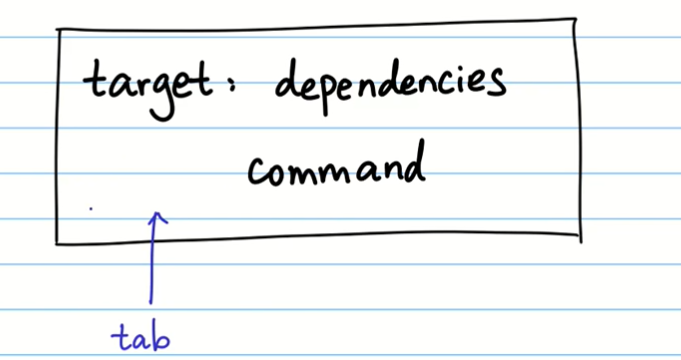 target: dependencies
command
tab